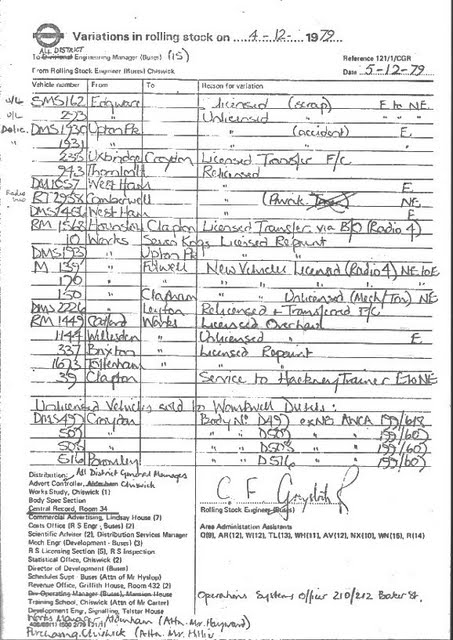 Variations in rolling stock on 4-12- 1979
ALL DISTRICT
To Engineering Manager (Buses) (15)
Reference 121/1/CGR
From Rolling Stock Engineer (Buses) Chiswick
Date 5-12-79
Vehicle number From To Reason for variation
U/L SMS162 Edgware Licensed (scrap) E to NE
O/L 293 " Unlicensed "
Delic. DMS1930 Upton Pk " (accident) E.
" 1931 " " "
235 Uxbridge Croydon Licensed Transfer F/C
943 Thornhill Relicensed
West Ham " E
RT2958 Camberwell " NE
West Ham " E
RM 1568 Hounslow Clapton Licensed Transfer via B/O (Radio 4)
10 Works Seven Kings Licensed Repaint
DMS1931 " Upton Pk "
M 139 " Fulwell New Vehicles Licensed (Radio 4) NE to E
170 " " "
150 " Clapham " Unlicensed (Mech/Tng) NE
DMS2226 " Leyton Relicensed + Transferred F/C
RM 1449 Catford Works Licensed Overhaul
1144 Willesden " Unlicensed " E
337 Brixton " Licensed Repaint
1673 Tottenham " "
39 Clapton Service to Hackney Trainer E to NE
Unlicensed Vehicles sold to Wombwell Diesels:
DMS497 Croydon Body No D497 ex NB ANCA 199/618
507 " " D507 " " 199/60
508 " " D508 " " 199/60
516 Bromley " D516 " " 199/60
Distribution: All District General Managers
Advert Controller, Chiswick
Works Study, Chiswick (1)
Body Spec Section
Central Record, Room 34
Commercial Advertising, Lindsay House (7)
Costs Office (R S Engr, Buses) (2)
Scientific Adviser (2), Distribution Services Manager
Mech Engr (Development - Buses) (3)
R S Licensing Section (5), R S Inspection
Statistical Office, Chiswick (2)
Director of Development (Buses)
Schedules Supt - Buses (Attn of Mr Hyslop)
Revenue Office, Griffith House, Room 432 (2)
Div Operating Manager (Buses), Mansion House
Training School, Chiswick (Attn of Mr Carter)
Development Engr, Signalling, Telstar House
Works Manager, Aldenham (Attn. Mr. Hayward)
Purchasing, Chiswick (Attn. Mr.
Rolling Stock Engineer (Buses)
Area Administation Assistants
Q(9), AR(12), W(12), TL(13), WH(11), AV(12), NX(10), WN(15), R(14)
Operations Systems Officer 210/212 Baker St.